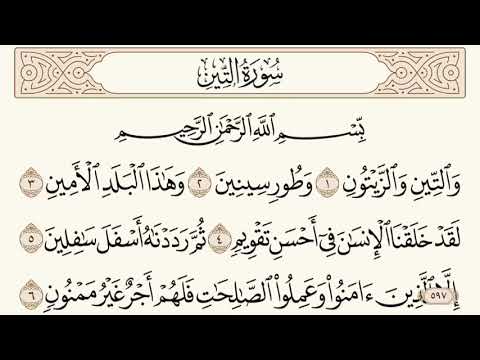 سُورَةُ التِّينِ
بِسْمِ اللَّهِ الرَّحْمَٰنِ الرَّحِيمِ
وَالتِّينِ وَالزَّيْتُونِ ١ وَطُورِ سِينِينَ ٢ وَهَٰذَا الْبَلَدِ الْأَمِينِ ٣
لَقَدْ خَلَقْنَا الْإِنسَانَ فِي أَحْسَنِ تَقْوِيمٍ ٤ ثُمَّ رَدَدْنَاهُ أَسْفَلَ سَافِلِينَ ٥
إِلَّا الَّذِينَ ءَامَنُوا وَعَمِلُوا الصَّالِحَاتِ فَلَهُمْ أَجْرٌ غَيْرُ مَمْنُونٍ ٦
٥٩٧